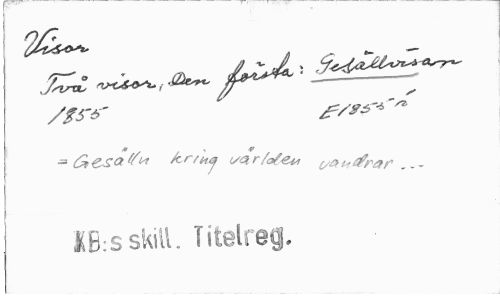 Visor
Två visor, Den första: Gesällvisan
1855 E1855 ñ
= Gesälln kring världen vandrar...
KB:s skill. Titelreg.